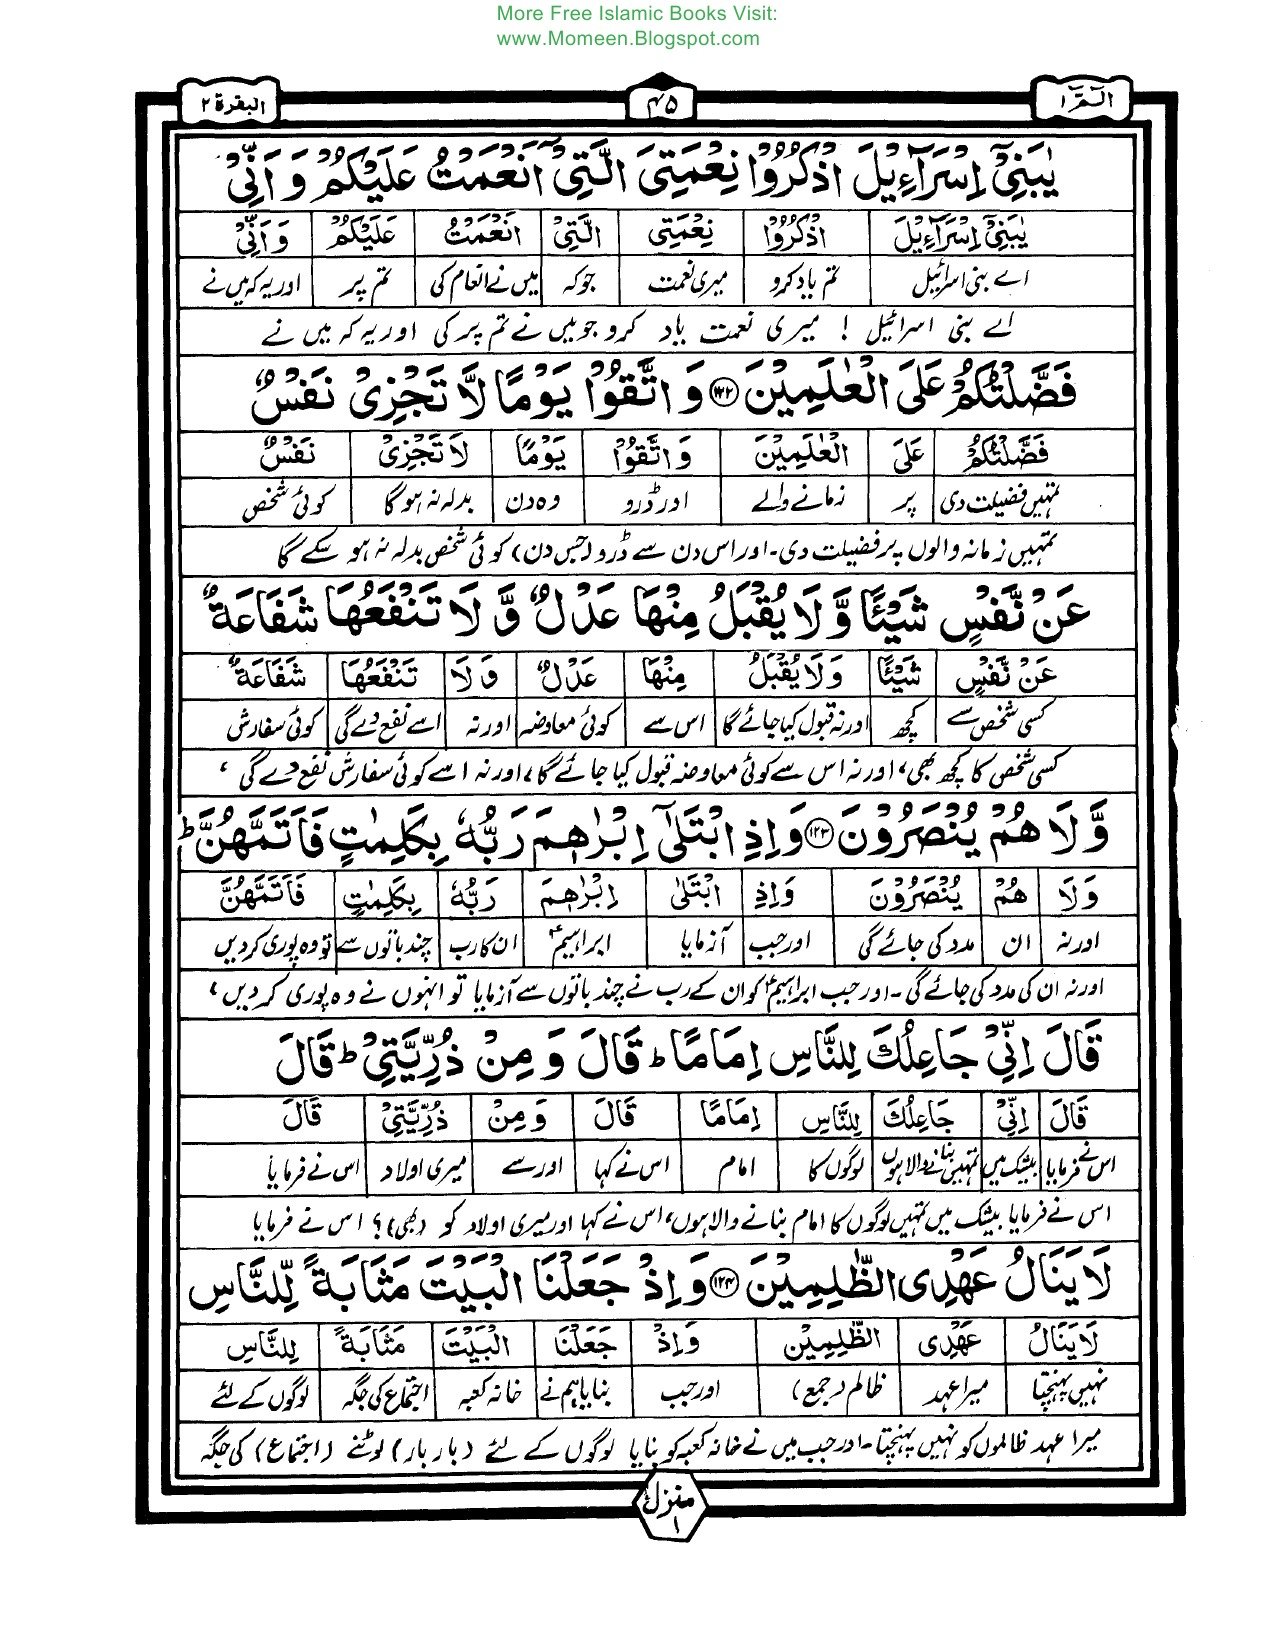 More Free Islamic Books Visit:
www.Momeen.Blogspot.com
الٓمّٓ ۱ ۴۵ البقرة ۲
يٰبَنِيْٓ اِسْرَآءِيْلَ اذْكُرُوْا نِعْمَتِيَ الَّتِيْٓ اَنْعَمْتُ عَلَيْكُمْ وَ اَنِّيْ
يٰبَنِيْٓ اِسْرَآءِيْلَ اذْكُرُوْا نِعْمَتِيَ الَّتِيْٓ اَنْعَمْتُ عَلَيْكُمْ وَ اَنِّيْ
اے بنی اسرائیل تم یاد کرو میری نعمت جو کہ میں نے انعام کی تم پر اور یہ کہ میں نے
اے بنی اسرائیل ! میری نعمت یاد کرو جو میں نے تم پر کی اور یہ کہ میں نے
فَضَّلْتُكُمْ عَلَى الْعٰلَمِيْنَ ۱۲۲ وَ اتَّقُوْا يَوْمًا لَّا تَجْزِيْ نَفْسٌ
فَضَّلْتُكُمْ عَلَى الْعٰلَمِيْنَ وَ اتَّقُوْا يَوْمًا لَا تَجْزِيْ نَفْسٌ
تمہیں فضیلت دی پر زمانے والے اور ڈرو وہ دن بدلہ نہ ہوگا کوئی شخص
تمہیں زمانہ والوں پر فضیلت دی۔ اور اس دن سے ڈرو (جس دن) کوئی شخص بدلہ نہ ہو سکے گا
عَنْ نَّفْسٍ شَيْـًٔا وَّ لَا يُقْبَلُ مِنْهَا عَدْلٌ وَّ لَا تَنْفَعُهَا شَفَاعَةٌ
عَنْ نَّفْسٍ شَيْـًٔا وَ لَا يُقْبَلُ مِنْهَا عَدْلٌ وَ لَا تَنْفَعُهَا شَفَاعَةٌ
کسی شخص سے کچھ اور نہ قبول کیا جائے گا اس سے کوئی معاوضہ اور نہ اسے نفع دے گی کوئی سفارش
کسی شخص کا کچھ بھی، اور نہ اس سے کوئی معاوضہ قبول کیا جائے گا، اور نہ اسے کوئی سفارش نفع دے گی،
وَّ لَا هُمْ يُنْصَرُوْنَ ۱۲۳ وَ اِذِ ابْتَلٰٓى اِبْرٰهٖمَ رَبُّهٗ بِكَلِمٰتٍ فَاَتَمَّهُنَّ ؕ
وَ لَا هُمْ يُنْصَرُوْنَ وَ اِذِ ابْتَلٰى اِبْرٰهٖمَ رَبُّهٗ بِكَلِمٰتٍ فَاَتَمَّهُنَّ
اور نہ ان مدد کی جائے گی اور جب آزمایا ابراہیمؑ ان کا رب چند باتوں سے تو وہ پوری کردیں
اور نہ ان کی مدد کی جائے گی۔ اور جب ابراہیمؑ کو ان کے رب نے چند باتوں سے آزمایا تو انہوں نے وہ پوری کردیں،
قَالَ اِنِّيْ جَاعِلُكَ لِلنَّاسِ اِمَامًا ؕ قَالَ وَ مِنْ ذُرِّيَّتِيْ ؕ قَالَ
قَالَ اِنِّيْ جَاعِلُكَ لِلنَّاسِ اِمَامًا قَالَ وَ مِنْ ذُرِّيَّتِيْ قَالَ
اس نے فرمایا بیشک میں تمہیں بنانے والا ہوں لوگوں کا امام اس نے کہا اور سے میری اولاد اس نے فرمایا
اس نے فرمایا بیشک میں تمہیں لوگوں کا امام بنانے والا ہوں، اس نے کہا اور میری اولاد کو (بھی)؟ اس نے فرمایا
لَا يَنَالُ عَهْدِي الظّٰلِمِيْنَ ۱۲۴ وَ اِذْ جَعَلْنَا الْبَيْتَ مَثَابَةً لِّلنَّاسِ
لَا يَنَالُ عَهْدِي الظّٰلِمِيْنَ وَ اِذْ جَعَلْنَا الْبَيْتَ مَثَابَةً لِلنَّاسِ
نہیں پہنچتا میرا عہد ظالم (جمع) اور جب بنایا ہم نے خانہ کعبہ اجتماع کی جگہ لوگوں کے لئے
میرا عہد ظالموں کو نہیں پہنچتا۔ اور جب میں نے خانہ کعبہ کو بنایا لوگوں کے لئے (بار بار) لوٹنے (اجتماع) کی جگہ
منزل ۱